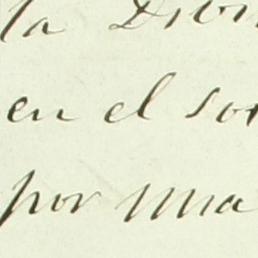 la Divi
en el so
por ma